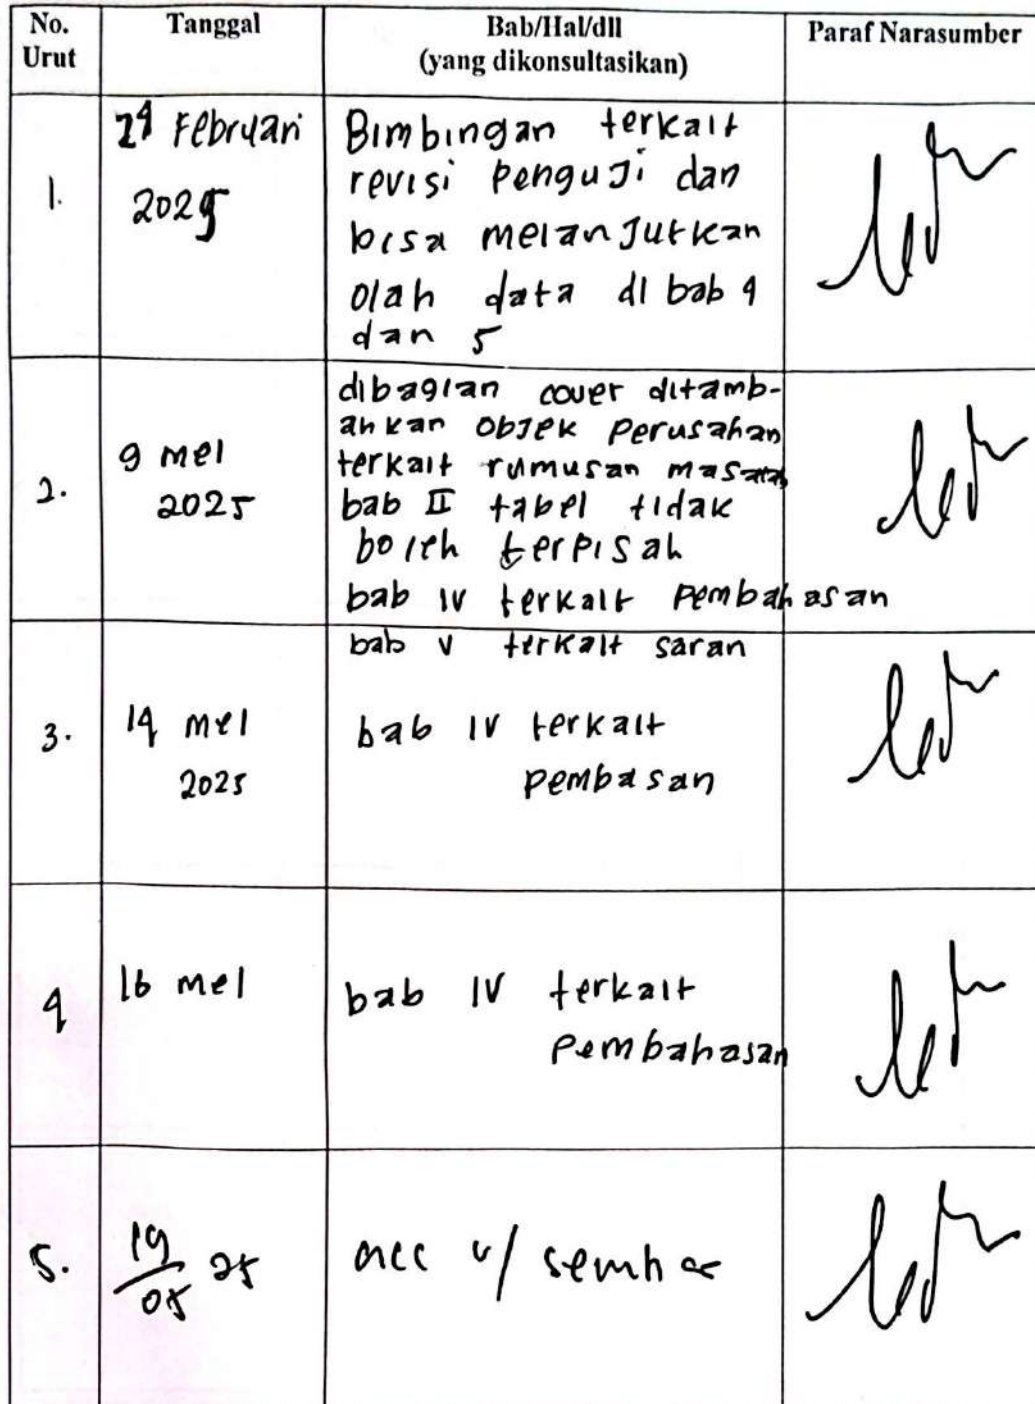 No. Urut
Tanggal
Bab/Hal/dll
(yang dikonsultasikan)
Paraf Narasumber
1.
24 Februari
2025
Bimbingan terkait
revisi Penguji dan
bisa melanjutkan
olah data di bab 4
dan 5
2.
9 mei
2025
dibagian cover ditamb-
ahkan objek Perusahan
terkait rumusan masalah
bab II tabel tidak
boleh terpisah
bab IV terkait Pembahasan
bab V terkait saran
3.
14 mei
2025
bab IV terkait
pembasan
4
16 mei
bab IV terkait
Pembahasan
5.
19/05 25
acc u/ semhas